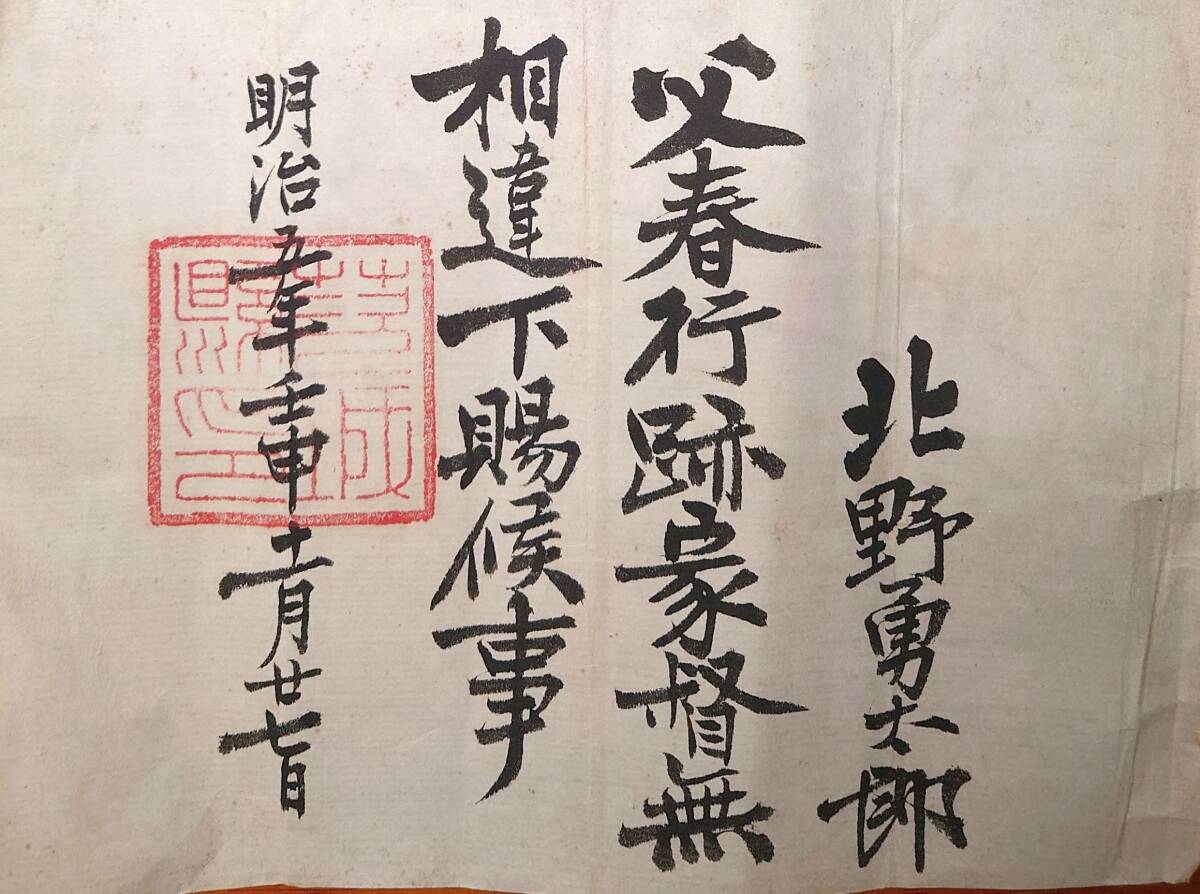 北野勇太郎
父春行跡家督無
相違下賜候事
明治五年壬申十一月廿七日